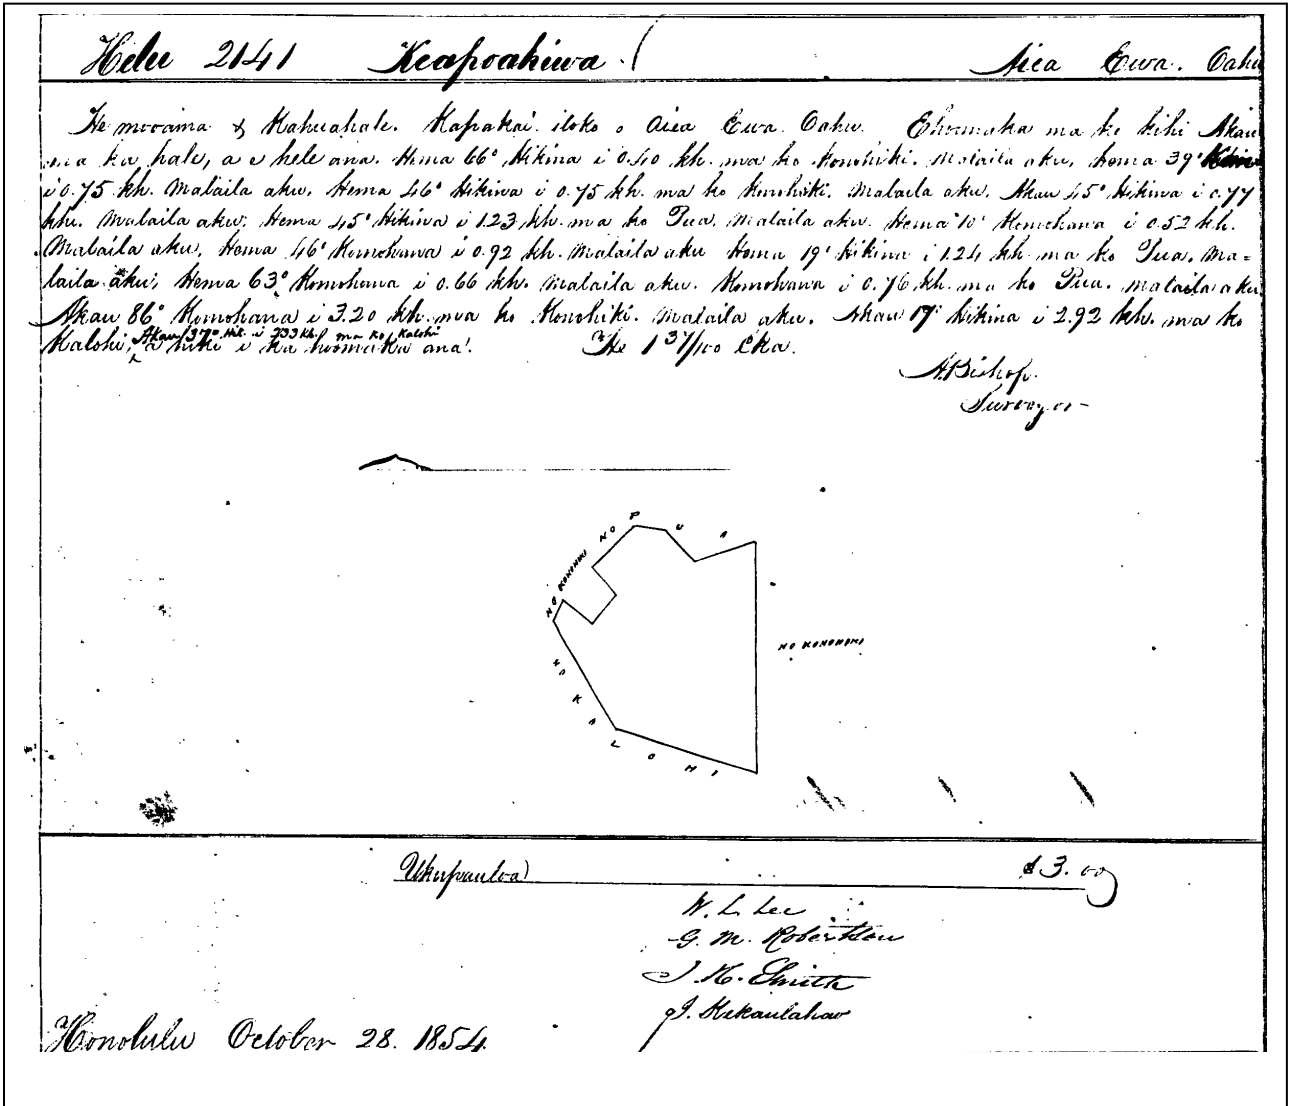 Helu 2141 Keapoahiwa. Aiea Ewa. Oahu
He mooaina & Kahuahale. Kapakai iloko o Aiea Ewa Oahu. Ehoomaka ma ke kihi Akau
ma ka pale, a e hele ana. Hema 66° Hikina i 0.40 kh. ma ko Konohiki. Malaila aku, Hema 39°
i 0.75 kh. Malaila aku, Hema 46° Hikina i 0.75 kh. ma ko Konohiki. Malaila aku, Akau 45° Hikina i 0.77
kh. Malaila aku, Hema 45° Hikina i 1.23 kh. ma ko Pua. Malaila aku Hema 10° Komohana i 0.52 kh.
Malaila aku, Hema 46° Komohana i 0.92 kh. Malaila aku Hema 19° Hikina i 1.24 kh ma ko Pua. Ma=
laila aku, Hema 63° Komohana i 0.66 kh. Malaila aku. Komohana i 0.76 kh. ma ko Pua. Malaila aku
Akau 86° Komohana i 3.20 kh. ma ko Konohiki. Malaila aku. Akau 17° Hikina i 2.92 kh. ma ko
Akau 37° Hik. i 233 kh. ma ko Kalohi
Kalohi, a hiki i ka hoomaka ana. He 1 37/100 Eka.
A. Bishop.
Surveyor
NO PUA
NO KONOHIKI
NO KONOHIKI
NO KALOHI
Ukupauloa $3.00
W. L. Lee
G. M. Robertson
J. H. Smith
J. Kekaulahao
Honolulu October 28. 1854.